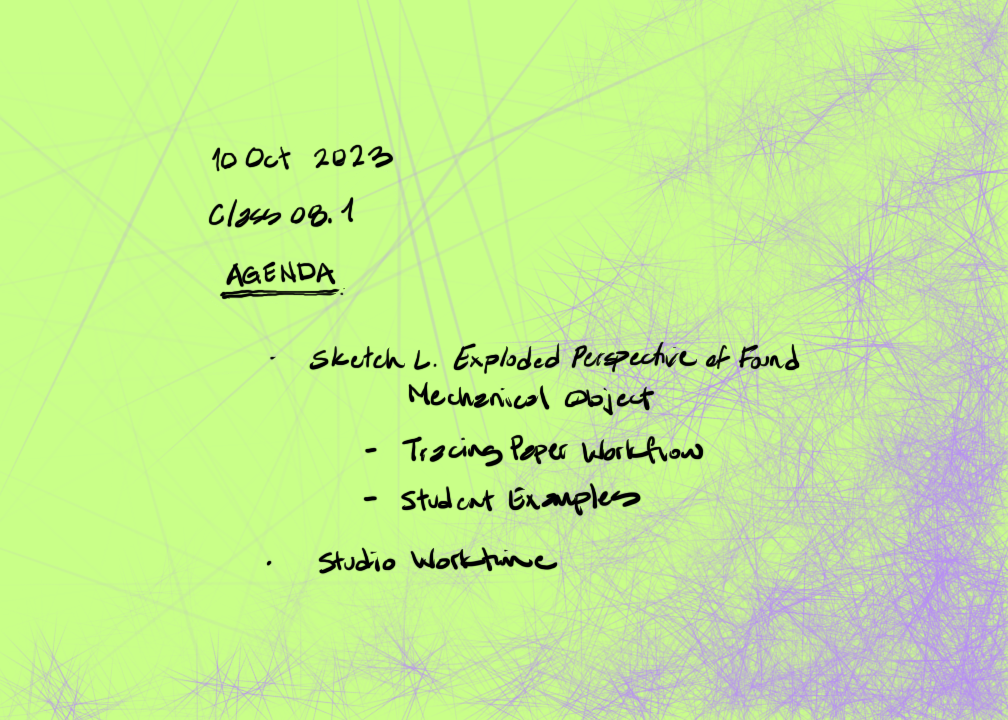 10 Oct 2023
Class 08.1
AGENDA
· Sketch L. Exploded Perspective of Found
Mechanical Object
- Tracing Paper Workflow
- Student Examples
· Studio Worktime